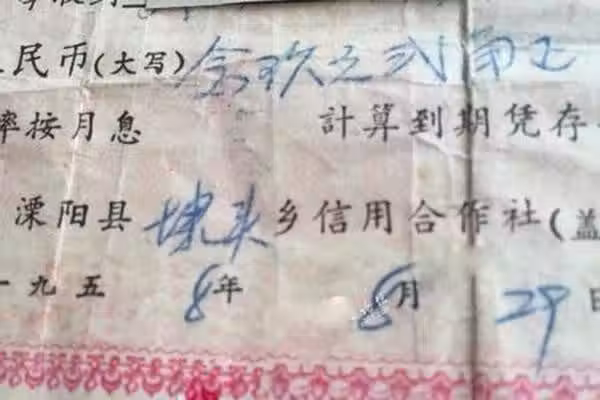 民币(大写)金玖元贰角正
率按月息 計算到期凭存
溧阳县埭头乡信用合作社(盖
一九五8年8月29日